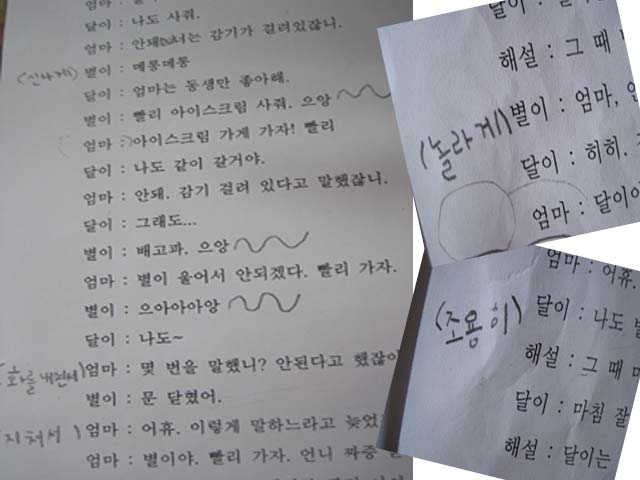 달이 : 나도 사줘.
엄마 : 안돼 너는 감기가 걸려있잖니.
(신나게) 별이 : 메롱메롱
달이 : 엄마는 동생만 좋아해.
별이 : 빨리 아이스크림 사줘. 으앙
엄마 : 아이스크림 가게 가자! 빨리
달이 : 나도 같이 갈거야.
엄마 : 안돼. 감기 걸려 있다고 말했잖니.
달이 : 그래도...
별이 : 배고파. 으앙
엄마 : 별이 울어서 안되겠다. 빨리 가자.
별이 : 으아아아앙
달이 : 나도~
(화를 내면서) 엄마 : 몇 번을 말했니? 안된다고 했잖아
별이 : 문 닫혔어.
(지쳐서) 엄마 : 어휴. 이렇게 말하느라고 늦었
엄마 : 별이야. 빨리 가자. 언니 짜증
달이 :
해설 : 그 때
(놀라게) 별이 : 엄마,
달이 : 히히.
엄마 : 달이
엄마 : 어휴.
(조용히) 달이 : 나도
해설 : 그 때
달이 : 마침 잘
해설 : 달이는